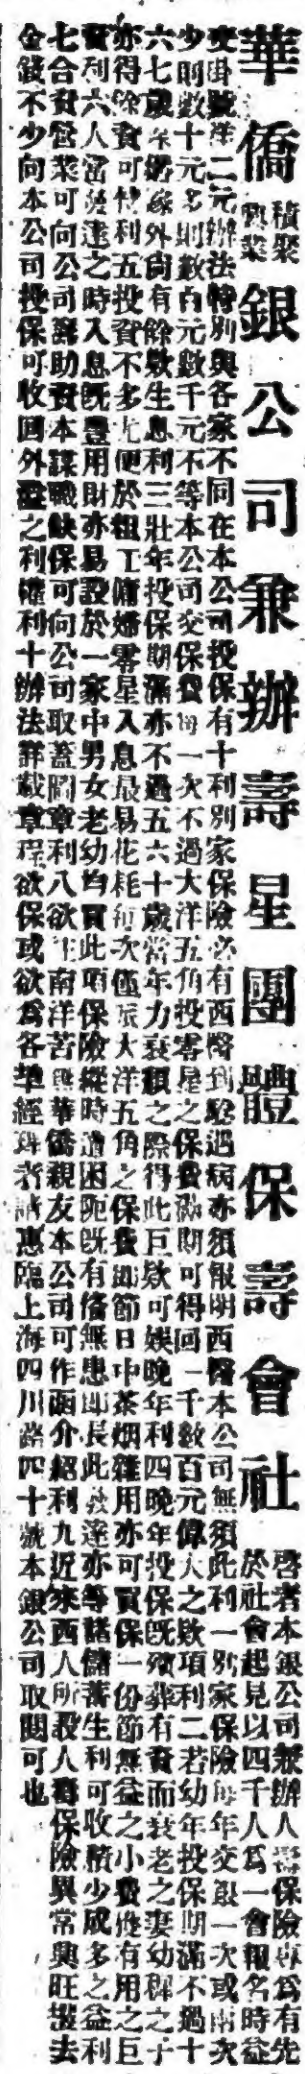 華僑積聚興業銀公司兼辦壽星團體保壽會社
啓者本銀公司兼辦人壽保險專爲有先
於社會起見以四千人爲一會報名時益
交掛號洋二元辦法特別與各家不同在本公司投保有十利別家保險必有西醫到驗過病亦須報明西醫本公司無須此利一別家保險每年交銀一次或兩次
少則數十元多則數百元數千元不等本公司交保費每一次不過大洋五角投零星之保費滿期可得回一千數百元偉大之欵項利二若幼年投保期滿不過十
六七歲除婚嫁外尙有餘欵生息利三壯年投保期滿亦不過五六十歲當年力衰頹之際得此巨欵可娛晚年利四晚年投保旣殯葬有資而衰老之妻幼穉之子
亦得餘資可恃利五投資不多尤便於粗工傭婦零星入息最易花耗每次僅派大洋五角之保費卽節日中茶烟雜用亦可買保一份節無益之小費獲有用之巨
資利六人當發達之時入息旣豐用財亦易設於一家中男女老幼均買此項保險縱時遭困阨旣有倚無患卽長此發達亦等諸儲蓄生利可收積少成多之益利
七合資營業可向公司籌助資本謀職缺保可向公司取蓋圖章利八欲往南洋苦無華僑親友本公司可作函介紹利九近來西人所設人壽保險異常興旺攫去
金錢不少向本公司投保可收回外溢之利權利十辦法詳載章程欲保或欲爲各埠經理者請惠臨上海四川路四十號本銀公司取閱可也